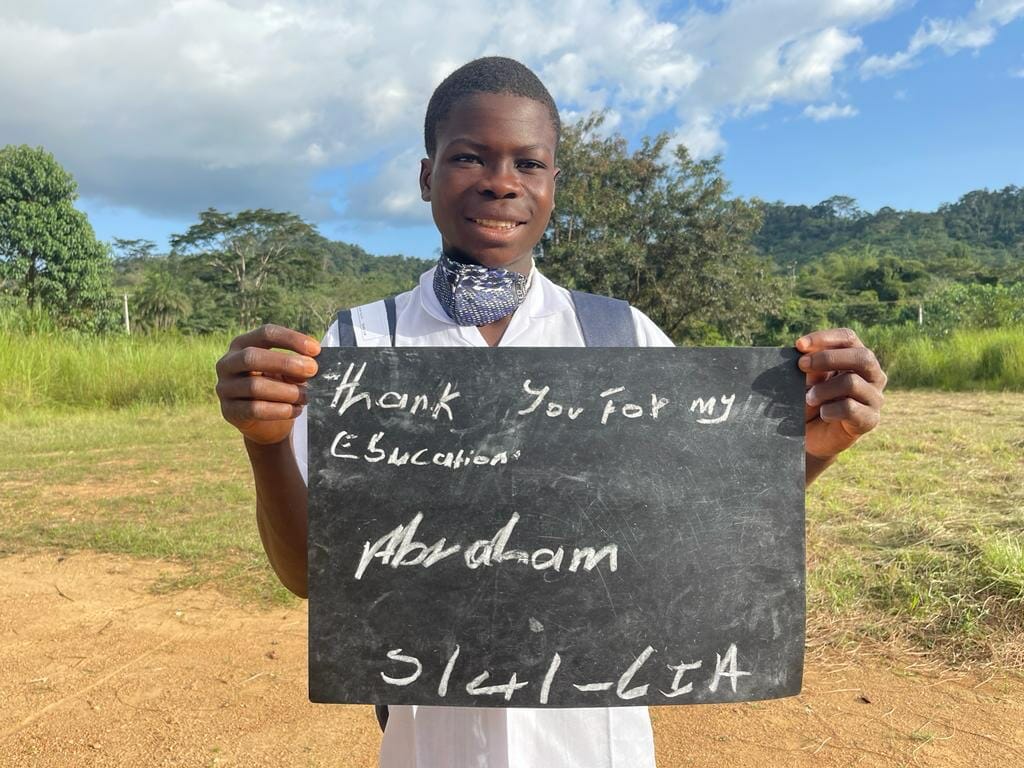 Thank You For my
Education.
Abraham
S141-LIA